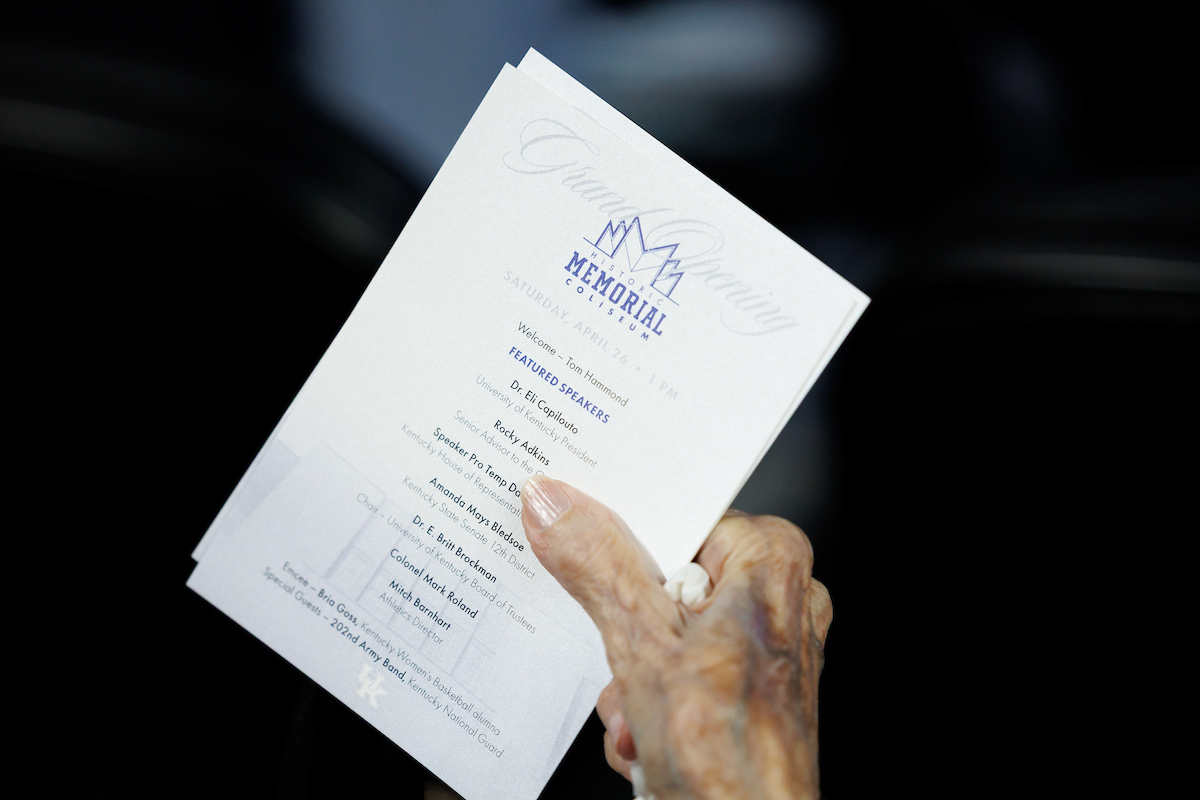 Grand Opening
HISTORIC
MEMORIAL
COLISEUM
SATURDAY, APRIL 26 • 1 PM
Welcome – Tom Hammond
FEATURED SPEAKERS
Dr. Eli Capilouto
University of Kentucky President
Rocky Adkins
Senior Advisor to the
Speaker Pro Temp
Kentucky House of
Amanda Mays Bledsoe
Kentucky State Senate 12th District
Dr. E. Britt Brockman
Chair – University of Kentucky Board of Trustees
Colonel Mark Roland
Mitch Barnhart
Athletics Director
Emcee – Bria Goss, Kentucky Women's Basketball alumna
Special Guests – 202nd Army Band, Kentucky National Guard
UK